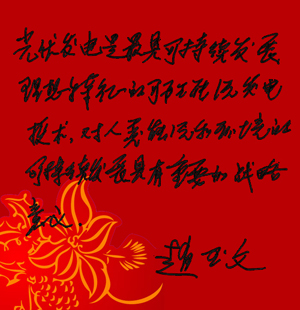 光伏发电是最具可持续发展
理想特征的可再生能源发电
技术,对人类能源和环境的
可持续发展具有重要的战略
意义.
赵玉文